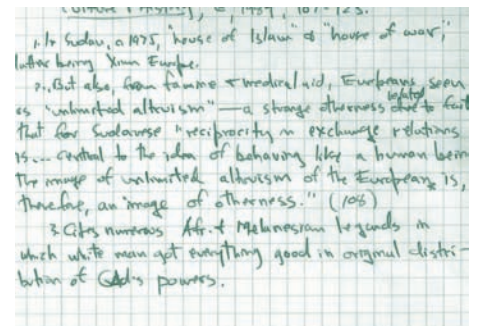 Culture & History, 2, 1987, 107-123.
1. In Sudan, c. 1975, "house of Islam" & "house of war",
latter being Xian Europe.
2. But also, from famine & medical aid, Europeans seen
as "unlimited altruism" — a strange otherness related to fact
that for Sudanese "reciprocity in exchange relations
is... central to the idea of behaving like a human being
The image of unlimited altruism of the European is,
therefore, an image of otherness." (108)
3. Cites numerous Afr. & Melanesian legends in
which white man got everything good in original distri-
bution of God's powers.